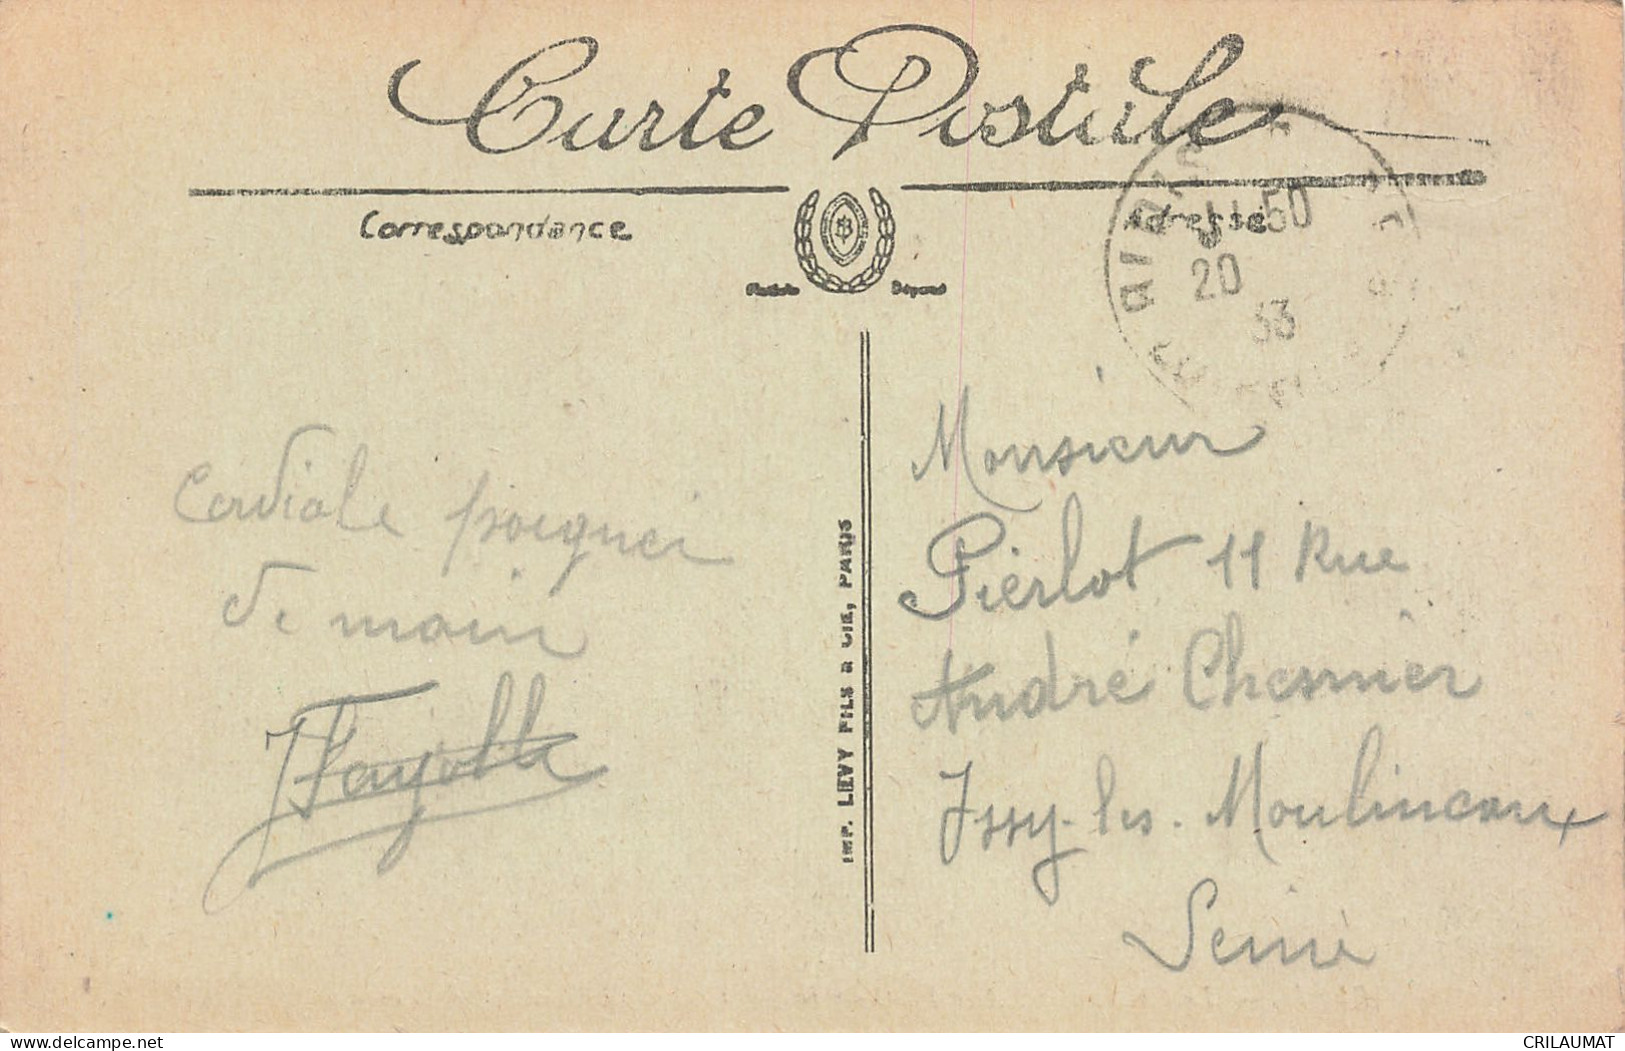 Carte Postale
Correspondance
Adresse
11 50
20
33
Cordiale poignei
de main
Fayolle
IMP. LÉVY FILS & CIE, PARIS
Monsieur
Pierlot 11 Rue
André Chesnier
Issy-les-Moulineaux
Seine
delcampe.net
CRILAUMAT